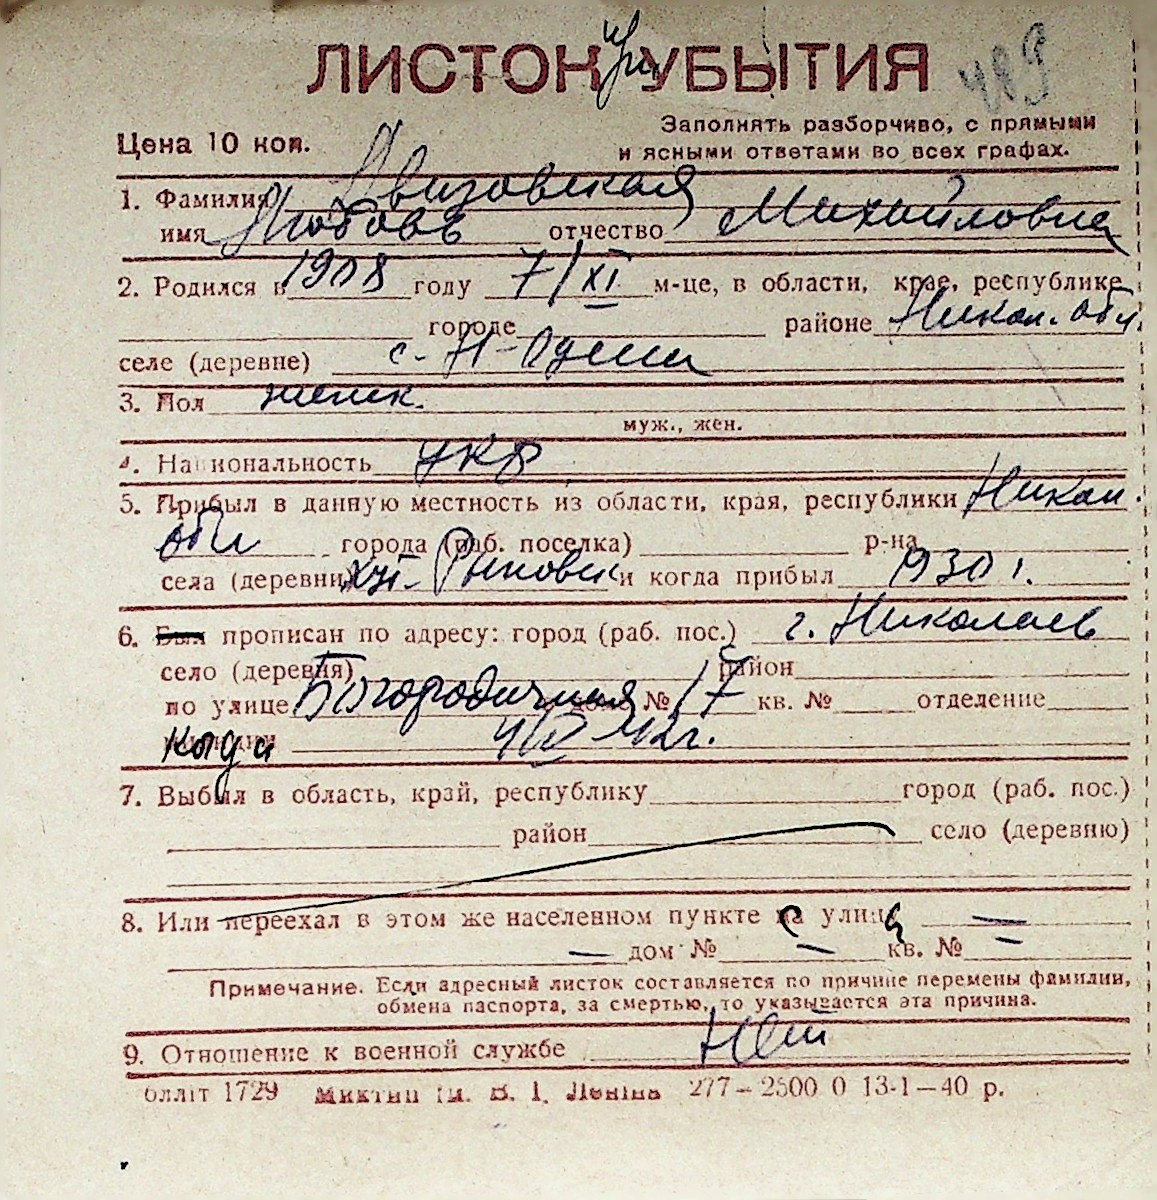 ЛИСТОК при УБЫТИЯ
489
Цена 10 коп.
Заполнять разборчиво, с прямыми
и ясными ответами во всех графах.
1. Фамилия Авизовская
имя Любовь отчество Михайловна
2. Родился в 1908 году 7/XI м-це, в области, крае, республике
городе районе Никол. обл.
селе (деревне) с. Н-Одеса
3. Пол женск.
муж., жен.
4. Национальность укр
5. Прибыл в данную местность из области, края, республики Никол.
обл города (раб. поселка) р-на
села (деревни) и когда прибыл 1930 г.
6. Был прописан по адресу: город (раб. пос.) г. Николаев
село (деревня) район
по улице Богородичная № 17 кв. № отделение
когда 4/IV 42г.
7. Выбыл в область, край, республику город (раб. пос.)
район село (деревню)
8. Или переехал в этом же населенном пункте с улицы —
— дом № — кв. № —
Примечание. Если адресный листок составляется по причине перемены фамилии,
обмена паспорта, за смертью, то указывается эта причина.
9. Отношение к военной службе Нет
олліт 1729 ім. В. І. Леніна 277—2500 0 13-1—40 р.